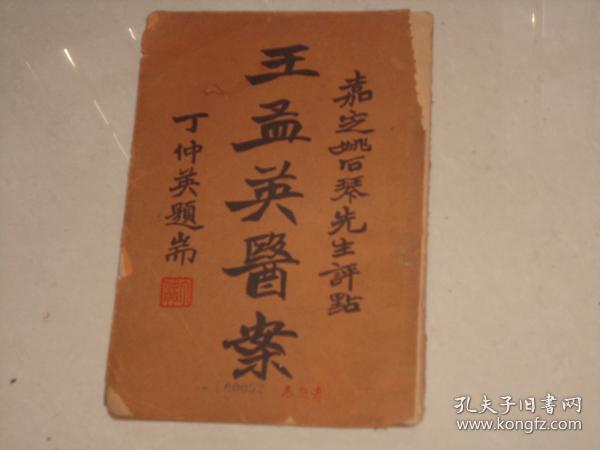 嘉定姚石琴先生評點
王孟英醫案
丁仲英題耑
160052
孔夫子旧書网
www.kongfz.com